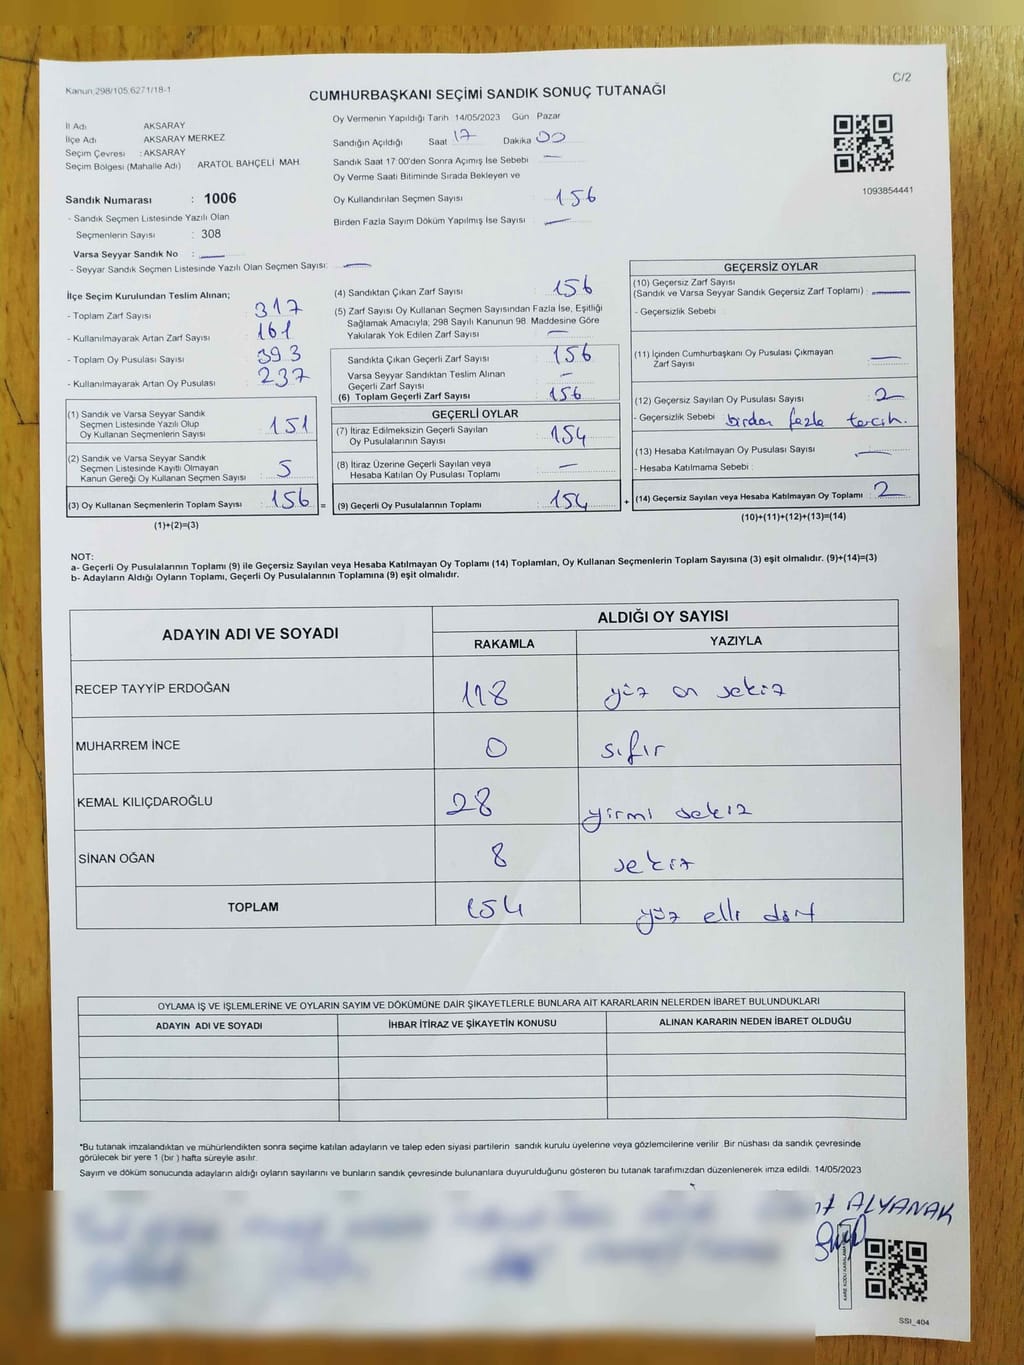 Kanun 298/105,6271/18-1
C/2
CUMHURBAŞKANI SEÇİMİ SANDIK SONUÇ TUTANAĞI
İl Adı AKSARAY
İlçe Adı AKSARAY MERKEZ
Seçim Çevresi : AKSARAY
Seçim Bölgesi (Mahalle Adı) : ARATOL BAHÇELİ MAH.
Sandık Numarası : 1006
- Sandık Seçmen Listesinde Yazılı Olan
Seçmenlerin Sayısı : 308
Varsa Seyyar Sandık No : —
- Seyyar Sandık Seçmen Listesinde Yazılı Olan Seçmen Sayısı: —
Oy Vermenin Yapıldığı Tarih 14/05/2023 Gün Pazar
Sandığın Açıldığı Saat 17 Dakika 00
Sandık Saat 17 00'den Sonra Açımış İse Sebebi —
Oy Verme Saati Bitiminde Sırada Bekleyen ve
Oy Kullandırılan Seçmen Sayısı 156
Birden Fazla Sayım Döküm Yapılmış İse Sayısı —
1093854441
İlçe Seçim Kurulundan Teslim Alınan;
- Toplam Zarf Sayısı 317
- Kullanılmayarak Artan Zarf Sayısı 161
- Toplam Oy Pusulası Sayısı 393
- Kullanılmayarak Artan Oy Pusulası 237
(1) Sandık ve Varsa Seyyar Sandık
Seçmen Listesinde Yazılı Olup
Oy Kullanan Seçmenlerin Sayısı 151
(2) Sandık ve Varsa Seyyar Sandık
Seçmen Listesinde Kayıtlı Olmayan
Kanun Gereği Oy Kullanan Seçmen Sayısı 5
(3) Oy Kullanan Seçmenlerin Toplam Sayısı 156 =
(1)+(2)=(3)
(4) Sandıktan Çıkan Zarf Sayısı 156
(5) Zarf Sayısı Oy Kullanan Seçmen Sayısından Fazla İse, Eşitliği
Sağlamak Amacıyla; 298 Sayılı Kanunun 98. Maddesine Göre
Yakılarak Yok Edilen Zarf Sayısı —
Sandıkta Çıkan Geçerli Zarf Sayısı 156
Varsa Seyyar Sandıktan Teslim Alınan
Geçerli Zarf Sayısı —
(6) Toplam Geçerli Zarf Sayısı 156
GEÇERLİ OYLAR
(7) İtiraz Edilmeksizin Geçerli Sayılan
Oy Pusulalarının Sayısı 154
(8) İtiraz Üzerine Geçerli Sayılan veya
Hesaba Katılan Oy Pusulası Toplamı —
(9) Geçerli Oy Pusulalarının Toplamı 154 +
GEÇERSİZ OYLAR
(10) Geçersiz Zarf Sayısı
(Sandık ve Varsa Seyyar Sandık Geçersiz Zarf Toplamı) : —
- Geçersizlik Sebebi :
(11) İçinden Cumhurbaşkanı Oy Pusulası Çıkmayan
Zarf Sayısı —
(12) Geçersiz Sayılan Oy Pusulası Sayısı : 2
- Geçersizlik Sebebi : birden fazla tercih.
(13) Hesaba Katılmayan Oy Pusulası Sayısı : —
- Hesaba Katılmama Sebebi :
(14) Geçersiz Sayılan veya Hesaba Katılmayan Oy Toplamı : 2
(10)+(11)+(12)+(13)=(14)
NOT:
a- Geçerli Oy Pusulalarının Toplamı (9) ile Geçersiz Sayılan veya Hesaba Katılmayan Oy Toplamı (14) Toplamları, Oy Kullanan Seçmenlerin Toplam Sayısına (3) eşit olmalıdır. (9)+(14)=(3)
b- Adayların Aldığı Oyların Toplamı, Geçerli Oy Pusulalarının Toplamına (9) eşit olmalıdır.
ADAYIN ADI VE SOYADI ALDIĞI OY SAYISI
RAKAMLA YAZIYLA
RECEP TAYYİP ERDOĞAN 118 yüz on sekiz
MUHARREM İNCE 0 sıfır
KEMAL KILIÇDAROĞLU 28 yirmi sekiz
SİNAN OĞAN 8 sekiz
TOPLAM 154 yüz elli dört
OYLAMA İŞ VE İŞLEMLERİNE VE OYLARIN SAYIM VE DÖKÜMÜNE DAİR ŞİKAYETLERLE BUNLARA AİT KARARLARIN NELERDEN İBARET BULUNDUKLARI
ADAYIN ADI VE SOYADI İHBAR İTİRAZ VE ŞİKAYETİN KONUSU ALINAN KARARIN NEDEN İBARET OLDUĞU
*Bu tutanak imzalandıktan ve mühürlendikten sonra seçime katılan adayların ve talep eden siyasi partilerin sandık kurulu üyelerine veya gözlemcilerine verilir. Bir nüshası da sandık çevresinde
görülecek bir yere 1 (bir ) hafta süreyle asılır.
Sayım ve döküm sonucunda adayların aldığı oyların sayılarını ve bunların sandık çevresinde bulunanlara duyurulduğunu gösteren bu tutanak tarafımızdan düzenlenerek imza edildi. 14/05/2023
ALYANAK
SSI_404